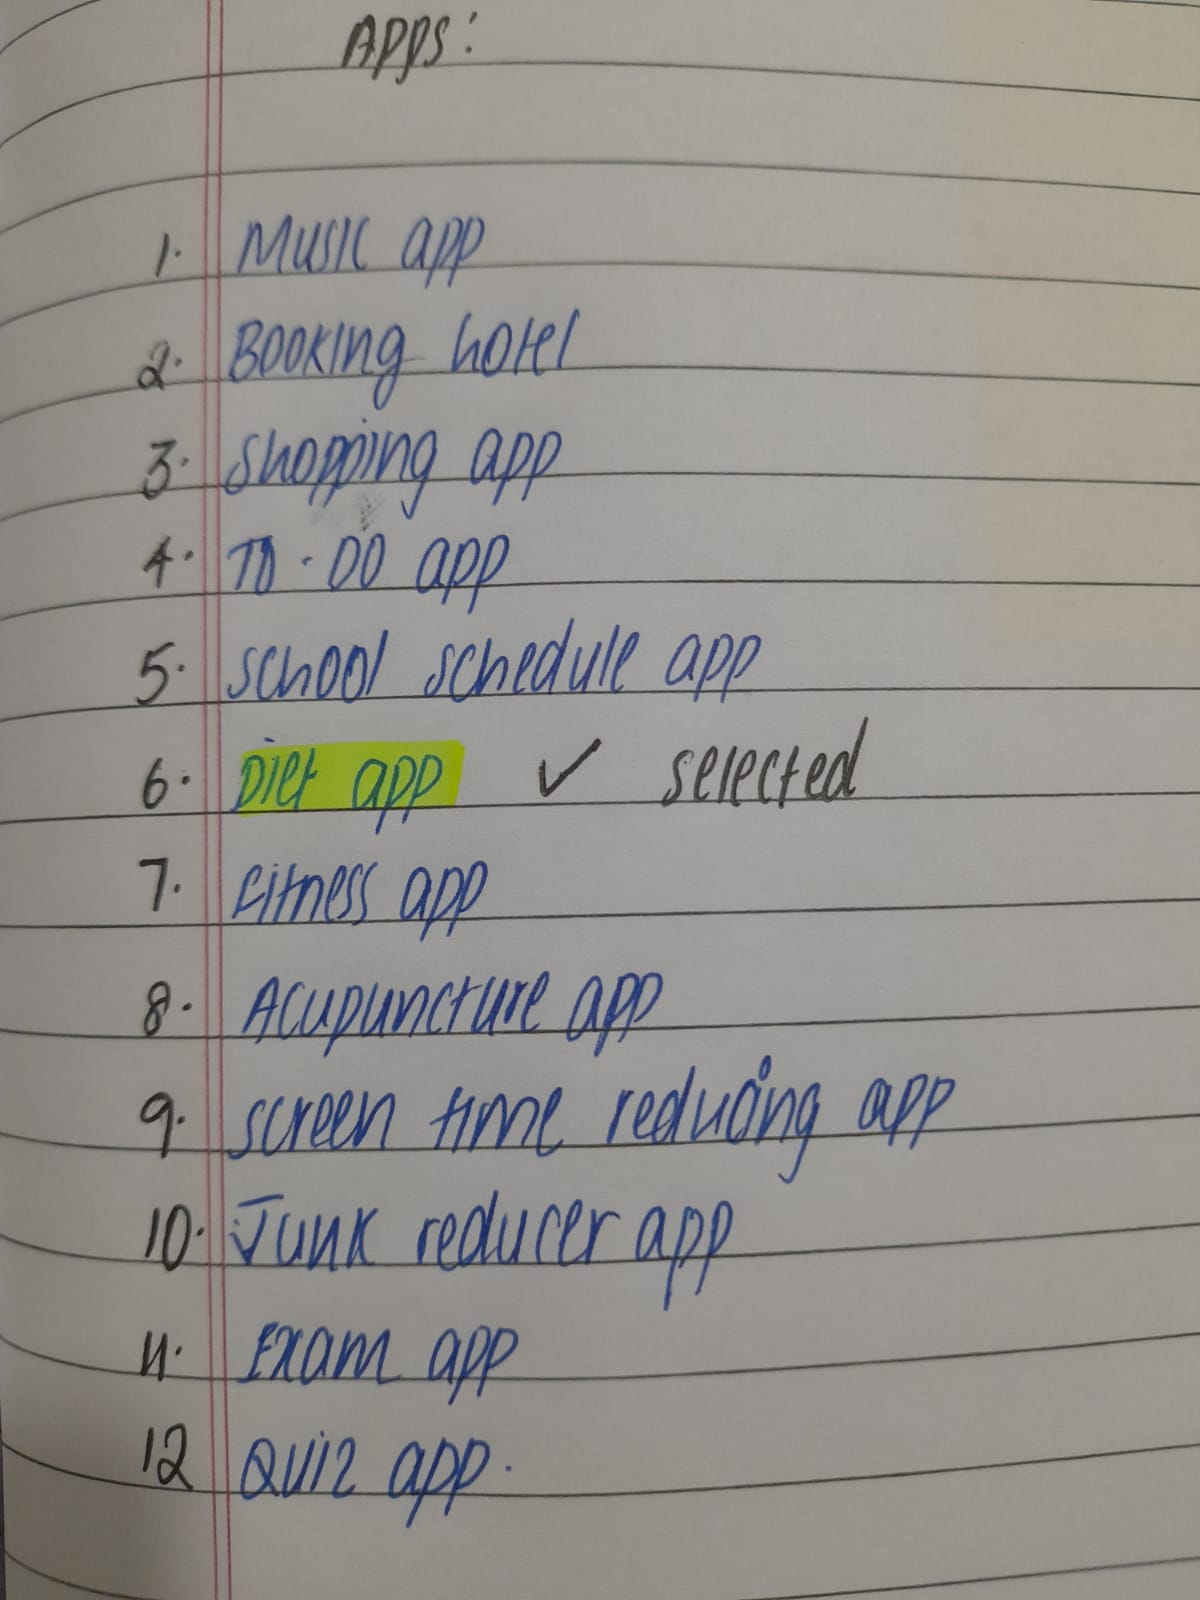 Apps:
1. Music app
2. Booking hotel
3. Shopping app
4. TO-DO app
5. School schedule app
6. Diet app ✓ selected
7. Fitness app
8. Acupuncture app
9. Screen time reducing app
10. Junk reducer app
11. Exam app
12 Quiz app.